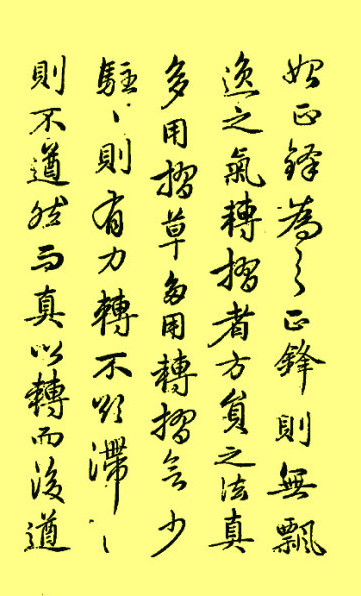 始正鋒為之正鋒則無飄
逸之氣轉摺者方員之法真
多用摺草多用轉摺欲少
駐〻則有力轉不欲滯〻
則不遒然而真以轉而後遒